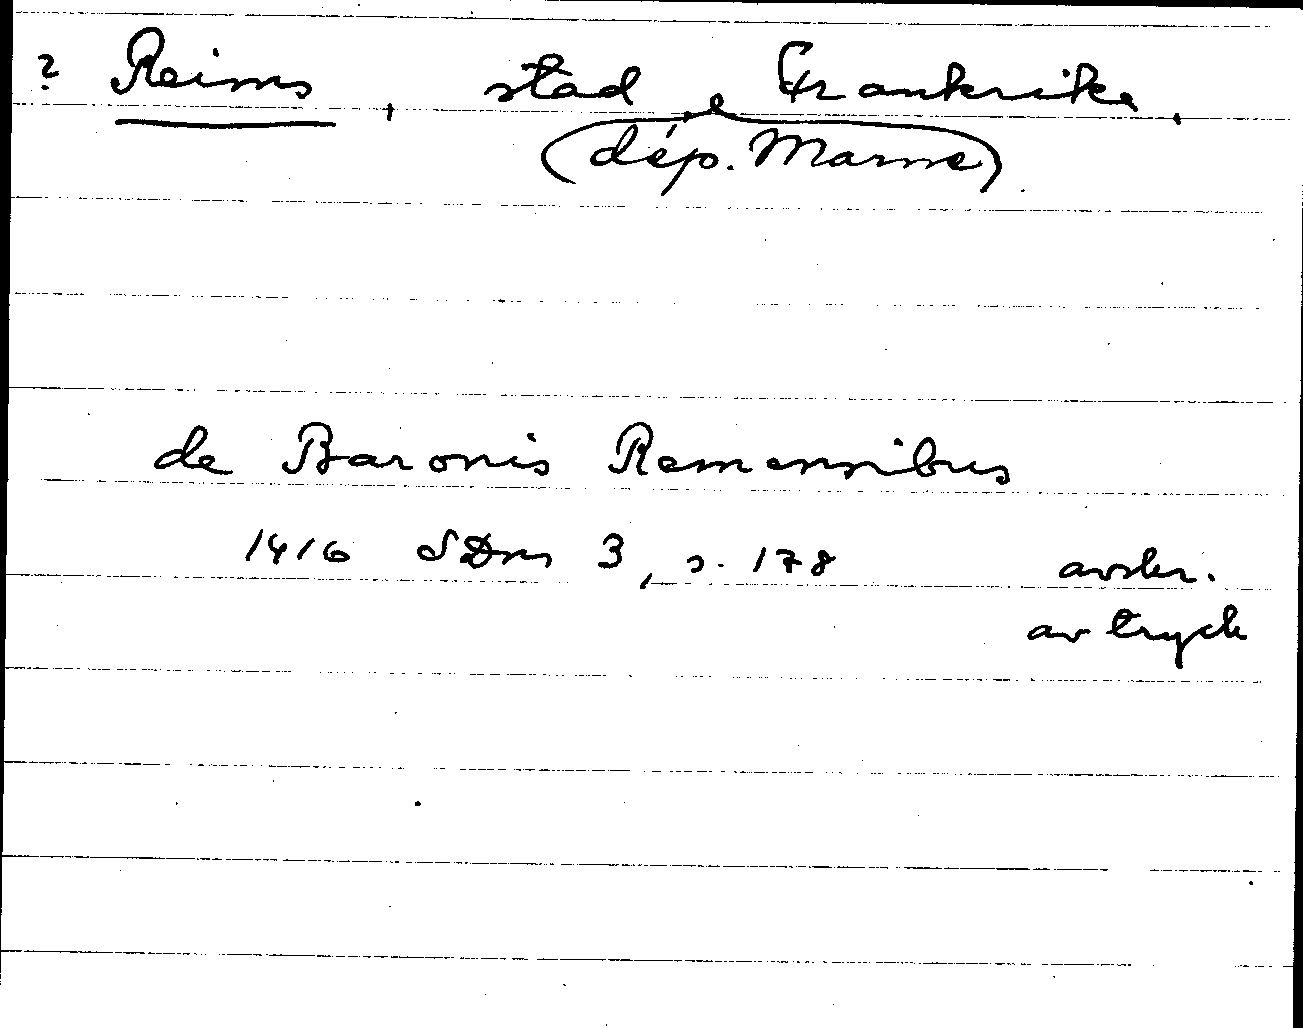 ? Reims, stad, Frankrike.
(dép. Marne)
de Baronis Remensibus
1416 SDns 3, s. 178 avskr.
av tryck